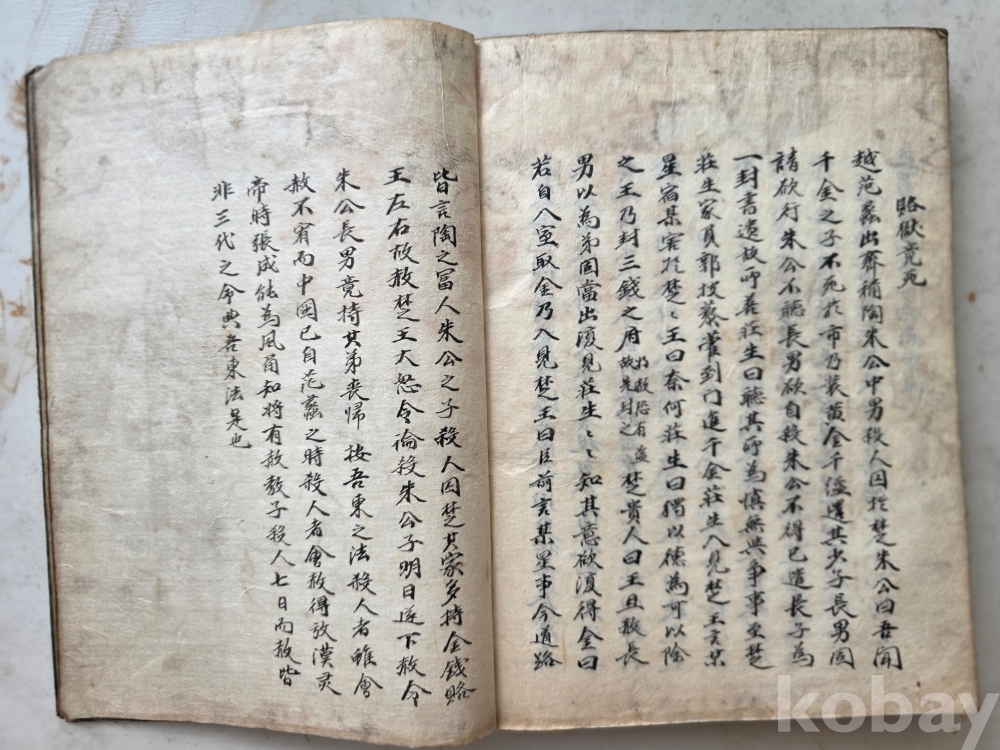 賂獄竟死
越范蠡出齊稱陶朱公中男殺人囚於楚朱公曰吾聞
千金之子不死於市乃裝黃金千溢遣其少子長男固
請欲行朱公不聽長男欲自殺朱公不得已遣長子為
一封書遺故所善莊生曰聽其所為愼無與爭事至楚
莊生家負郭披藜藿到門進千金莊生入見楚王言某
星宿某害於楚〻王曰奈何莊生曰獨以德為可以除
之王乃封三錢之府 將赦恐有盜故先封之 楚貴人曰王且赦長
男以為弟固當出復見莊生〻知其意欲復得金曰
若自入室取金乃入見楚王曰臣前言某星事今道路
皆言陶之富人朱公之子殺人囚楚其家多持金錢賂
王左右故赦楚王大怒令論殺朱公子明日遂下赦令
朱公長男竟持其弟喪歸 按吾東之法殺人者雖會
赦不宥而中國已自范蠡之時殺人者會赦得放漢灵
帝時張成能為風角知將有赦敎子殺人七日而赦皆
非三代之令典吾東法是也
kobay